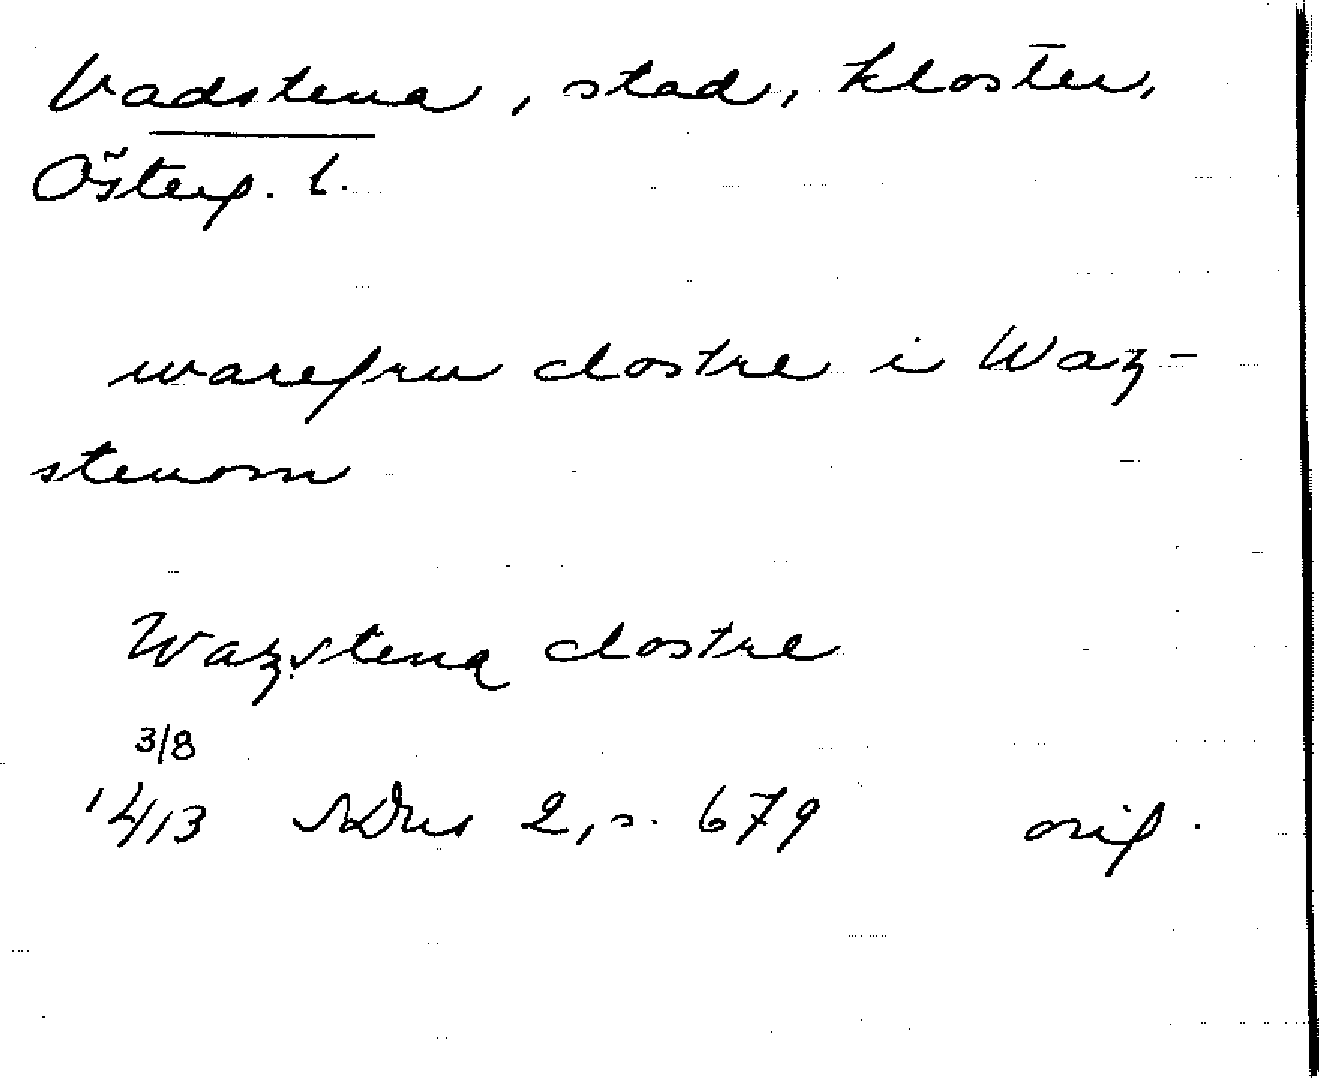 Vadstena, stad, kloster,
Österg. l.
warefru clostre i Waz-
stenom
Wazstena clostre
3/8
1413 SDns 2, s. 679 orig.